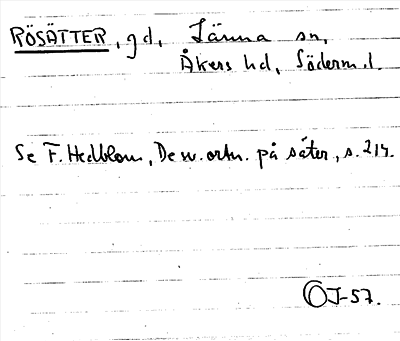 RÖSÄTTER, gd, Länna sn,
Åkers hd, Söderm.l.
Se F. Hedblom, De sv. ortn. på säter, s. 214.
OJ-57.